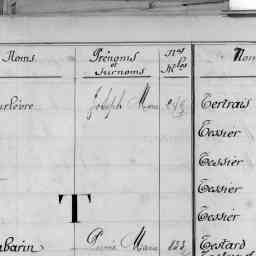 Noms Prénoms et surnoms Nos Mles Nom
Joseph Marie Tertrais
Tessier
Tessier
Tessier
T Tessier
barin Pierre Marie 123 Testard